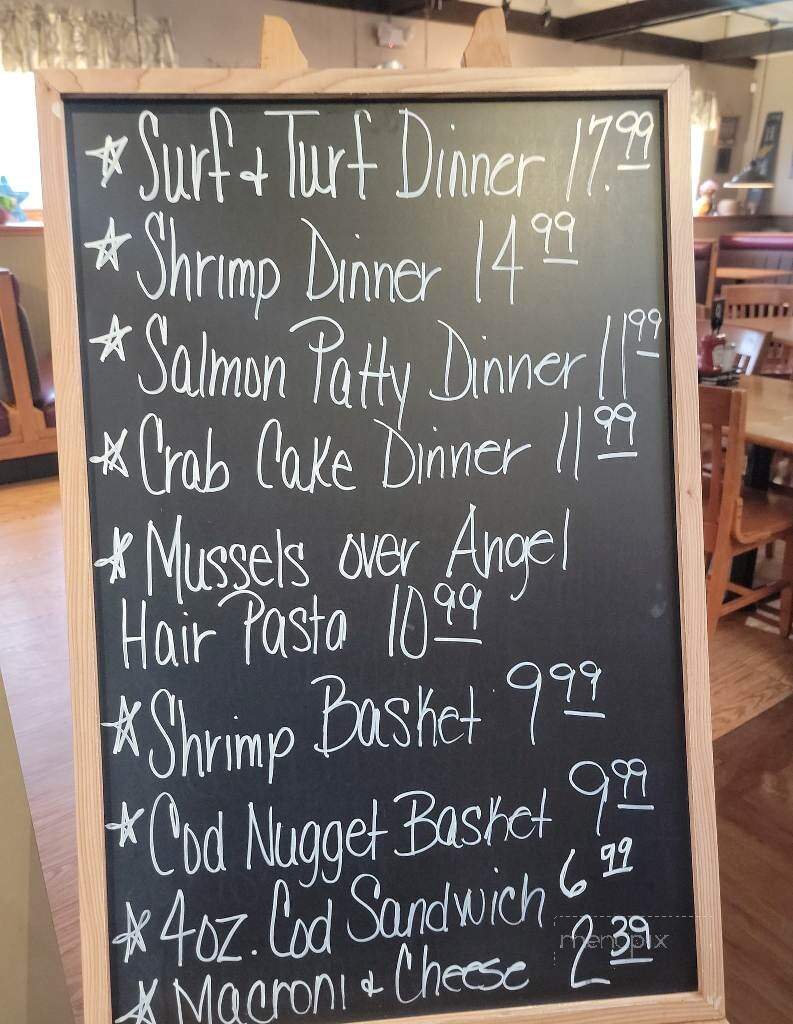 ☆ Surf & Turf Dinner 17.99
☆ Shrimp Dinner 14 99
☆ Salmon Patty Dinner 11 99
☆ Crab Cake Dinner 11 99
☆ Mussels over Angel
Hair Pasta 10 99
☆ Shrimp Basket 9 99
☆ Cod Nugget Basket 9 99
☆ 4oz. Cod Sandwich 6 99
☆ Macroni & Cheese 2 39
menupix